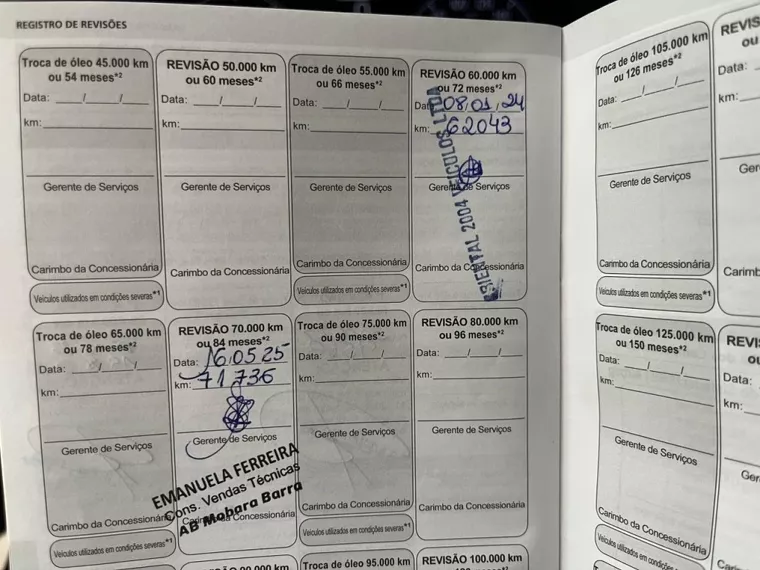 REGISTRO DE REVISÕES
Troca de óleo 45.000 km
ou 54 meses*2
Data: ___/___/___
km:
Gerente de Serviços
Carimbo da Concessionária
Veículos utilizados em condições severas*1
REVISÃO 50.000 km
ou 60 meses*2
Data: ___/___/___
km:
Gerente de Serviços
Carimbo da Concessionária
Troca de óleo 55.000 km
ou 66 meses*2
Data: ___/___/___
km:
Gerente de Serviços
Carimbo da Concessionária
Veículos utilizados em condições severas*1
REVISÃO 60.000 km
ou 72 meses*2
Data: 08/01/24
km: 62043
Gerente de Serviços
Carimbo da Concessionária
ORIENTAL 2004 VEICULOS LTDA
Troca de óleo 105.000 km
ou 126 meses*2
Data: ___/___/___
km:
Gerente de Serviços
Carimbo da Concessionária
Veículos utilizados em condições severas*1
REVIS
ou
Data:
km:
Ger
Carimb
Troca de óleo 65.000 km
ou 78 meses*2
Data: ___/___/___
km:
Gerente de Serviços
Carimbo da Concessionária
Veículos utilizados em condições severas*1
REVISÃO 70.000 km
ou 84 meses*2
Data: 16/05/25
km: 71.736
Gerente de Serviços
Carimbo da Concessionária
EMANUELA FERREIRA
Cons. Vendas Técnicas
AB Mobara Barra
Troca de óleo 75.000 km
ou 90 meses*2
Data: ___/___/___
km:
Gerente de Serviços
Carimbo da Concessionária
Veículos utilizados em condições severas*1
REVISÃO 80.000 km
ou 96 meses*2
Data: ___/___/___
km:
Gerente de Serviços
Carimbo da Concessionária
Troca de óleo 125.000 km
ou 150 meses*2
Data: ___/___/___
km:
Gerente de Serviços
Carimbo da Concessionária
Veículos utilizados em condições severas*1
REVI
ou
Data:
km:
Ger
Carim
90.000 km
Troca de óleo 95.000 km
REVISÃO 100.000 km